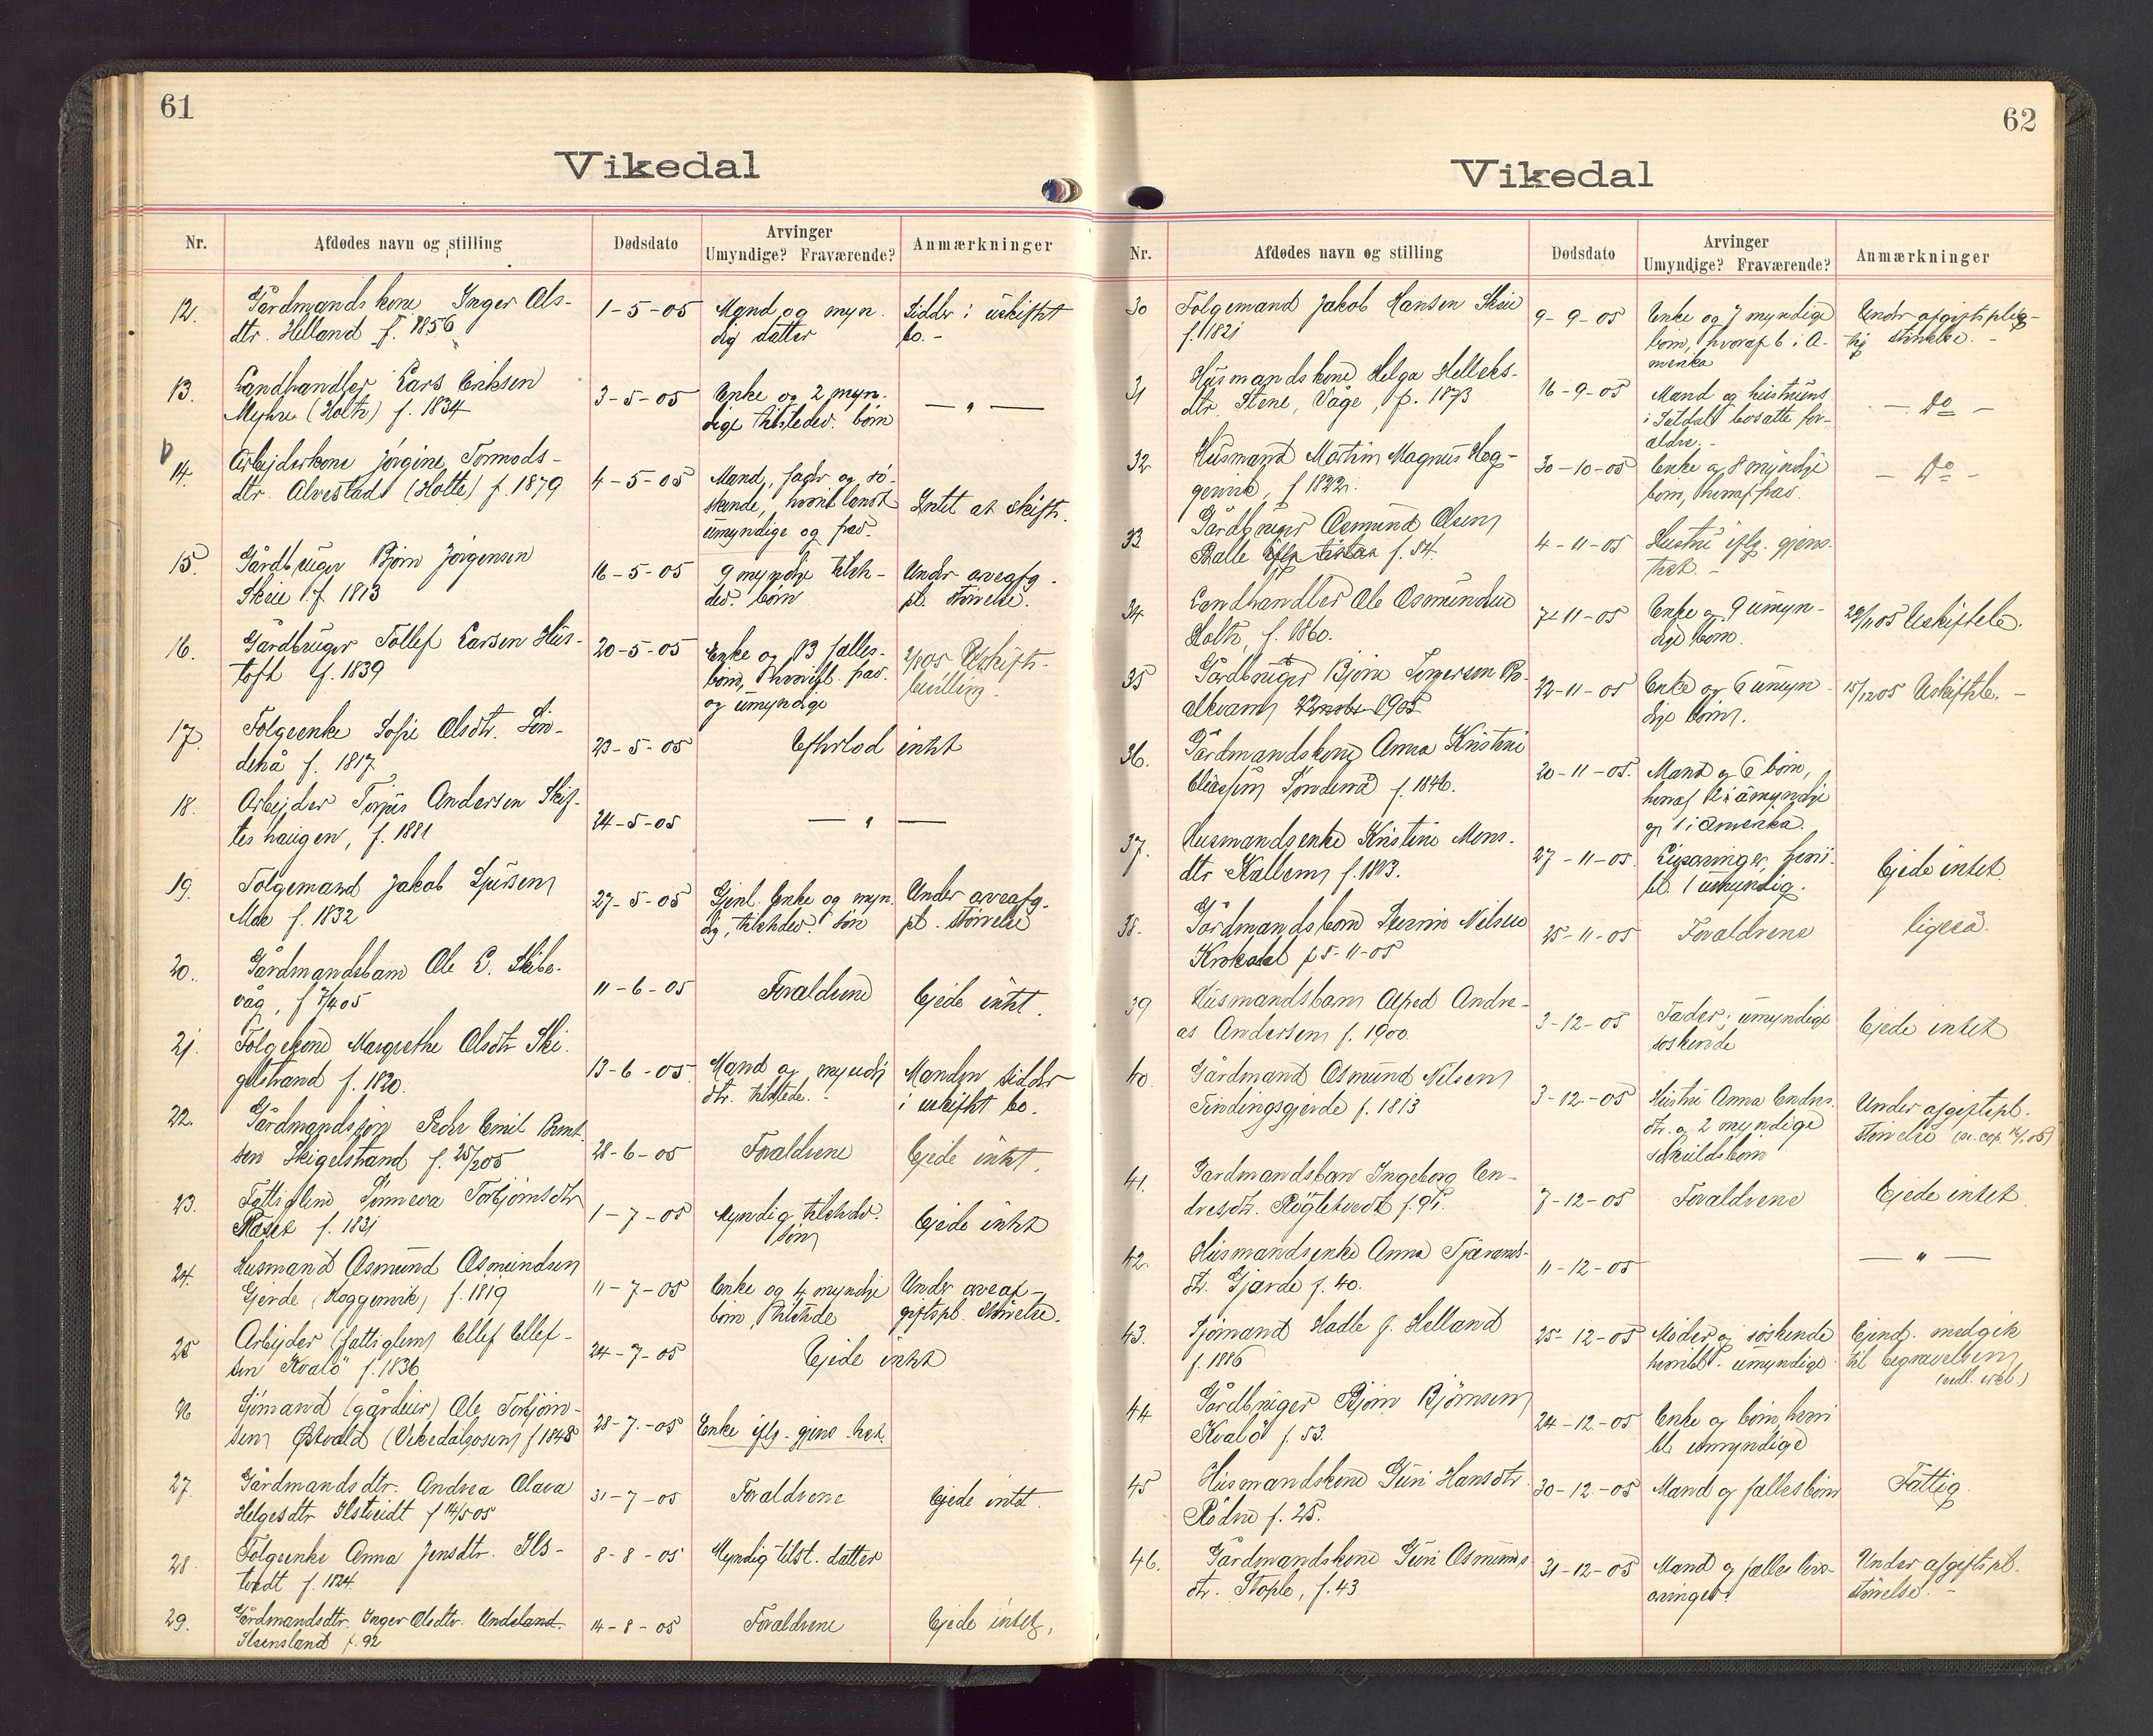 61
Vikedal
Nr.
Afdødes navn og stilling
Dødsdato
Arvinger
Umyndige? Fraværende?
Anmærkninger
12.
Gårdmandskone Inger Ols-
dtr. Helland f. 1856
1-5-05
Mand og myn-
dig datter
Sidder i uskiftet
bo. -
13.
Landhandler Lars Eriksen
Myhre (Holte) f. 1834
3-5-05
Enke og 2 myn-
dige tilstedev. børn
— „ —
14.
Arbejderkone Jørgine Tormods-
dtr. Alvestad (Holte) f. 1879
4-5-05
Mand, fader og sø-
skende, hvoriblandt
umyndige og frav.
Intet at skifte.
15.
Gårdbruger Bjørn Jørgensen
Skeie f. 1813
16-5-05
9 myndige tilste-
dev. børn
Under arveafg.
pl. størrelse.
16.
Gårdbruger Tollef Larsen Hus-
toft f. 1839
20-5-05
Enke og 13 fælles-
børn, hvoribl. frav.
og umyndige
Uskifte-
bevilling.
17.
Følgeenke Sofie Olsdtr. Søn-
denå f. 1817
23-5-05
Efterlod intet
18.
Arbejder Torjus Andersen Skif-
teshaugen, f. 1881
24-5-05
— „ —
19.
Følgemand Jakob
Moe f. 1832
27-5-05
Gjenl. Enke og myn-
dig, tilstedev. søn
Under arveafg.
pl. størrelse
20.
Gårdmandsbarn Ole E. Skibe-
våg, f 7/4 05
11-6-05
Forældrene
Ejede intet.
21.
Følgekone Margrethe Olsdtr Ski-
gelstrand f. 1820.
13-6-05
Mand og myndig
dtr. tilstede. -
Manden sidder
i uskiftet bo.
22.
Gårdmandssøn Peder Emil Bernt
sen Skigelstrand f. 25/2 05
28-6-05
Forældrene
Ejede intet.
23.
Fattiglem Sønneva Torbjørnsdtr
f. 1831
1-7-05
Myndig tilstedev.
søn
Ejede intet
24.
Husmand Osmund Osmundsen
Gjerde (Hoggenvik) f. 1819
11-7-05
Enke og 4 myndige
børn, tilstede
Under arveaf-
giftspl. størrelse.
25
Arbejder (fattiglem) Ellef Ellef-
sen Kvalø f. 1836
24-7-05
Ejede intet
26
Sjømand (gårdeier) Ole Torbjørn-
sen Østvold (Vikedalsosen) f 1848
28-7-05
Enke iflg. gjens. test.
27.
Gårdmandsdtr. Andrea Olava
Helgesdtr Ilstveidt f 14/5 05
31-7-05
Forældrene
Ejede intet.
28.
Følgeenke Anna Jensdtr. Ils-
tvedt f. 1824.
8-8-05
Myndig tilst. datter
29.
Gårdmandsdtr. Inger Olsdtr. Undeland.
f. 92
14-8-05
Forældrene
Ejede intet.
62
Vikedal
Nr.
Afdødes navn og stilling
Dødsdato
Arvinger
Umyndige? Fraværende?
Anmærkninger
30
Følgemand Jakob Hansen Skeie
f. 1821
9-9-05
Enke og 7 myndige
børn, hvoraf 6 i A-
merika
Under afgiftsplig-
tig størrelse. -
31
Husmandskone Helga Helleks-
dtr. Stene, Våge, f. 1873
16-9-05
Mand og hustruens
i Suldal bosatte for-
ældre. -
— Do —
32
Husmand Martin Magnus Hog-
genvik, f 1822.
30-10-05
Enke og 8 myndige
børn, hvoraf frav.
— Do —
33
Gårdbruger Osmund Olsen
f. 54.
4-11-05
Hustru iflg. gjens.
test. -
34
Landhandler Ole Osmundsen
Holte, f. 1860.
7-11-05
Enke og 9 umyn-
dige børn.
Uskiftebe.
35
Gårdbruger Bjørn Torgersen Ro-
alkvam 1905
22-11-05
Enke og 6 umyn-
dige børn.
15/12 05 Uskiftebe. -
36.
Gårdmandskone Anna Kristine
Søndenå f. 1846.
20-11-05.
Mand og 6 børn,
hvoraf 2 umyndige
og 1 i Amerika.
37.
Husmandsenke Kristine Mons-
dtr Kallem f. 1813.
27-11-05.
Livsarvinger, hvori-
bl. 1 umyndig.
Ejede intet.
38.
Gårdmandsbarn Nilsen
Krokedal f 5-11-05
25-11-05
Forældrene
ligeså.
39
Husmandsbarn Alfred Andre-
as Andersen f. 1900.
3-12-05
Fader; umyndige
søskende
Ejede intet
40.
Gårdmand Osmund Nilsen
Tindingsgjerde f. 1813
3-12-05
Hustru Anna Endres-
dtr. og 2 myndige
særkuldsbørn
Under afgiftspl.
størrelse
41.
Gårdmandsbarn Ingeborg En-
dresdtr. f. 95.
7-12-05
Forældrene
Ejede intet
42.
Husmandsenke Anna Tjærands-
dtr. Gjærde f. 40.
11-12-05
— „ —
43.
Sjømand Hadle J. Helland
f. 1886
25-12-05
Moder og søskende
hvoribl. umyndige
Eiend. medgik
til begravelsen
44
Gårdbruger Bjørn Bjørnsen
Kvalø f. 53.
24-12-05
Enke og børn, hvori
bl. umyndige
45
Husmandskone Guri Hansdtr.
Rødne f. 25.
30-12-05
Mand og fællesbørn
Fattig.
46.
Gårdmandskone Guri Osmunds
dtr. Stople, f. 43
31-12-05
Mand og fælles livs-
arvinger
Under afgiftspl.
størrelse. -